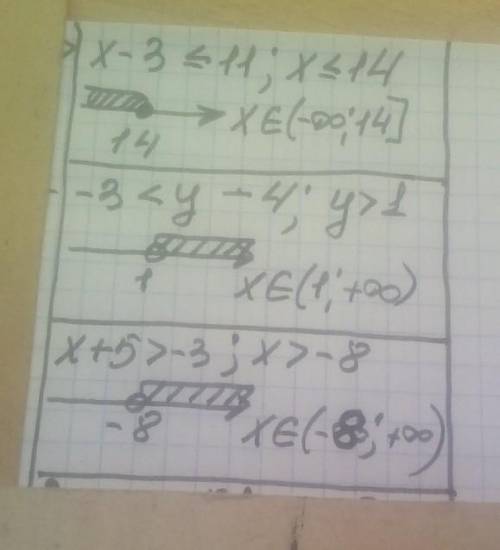 ) x-3≤11; x≤14
14 x∈(-∞;14]
-3<y-4; y>1
1 x∈(1;+∞)
x+5>-3; x>-8
-8 x∈(-8;+∞)